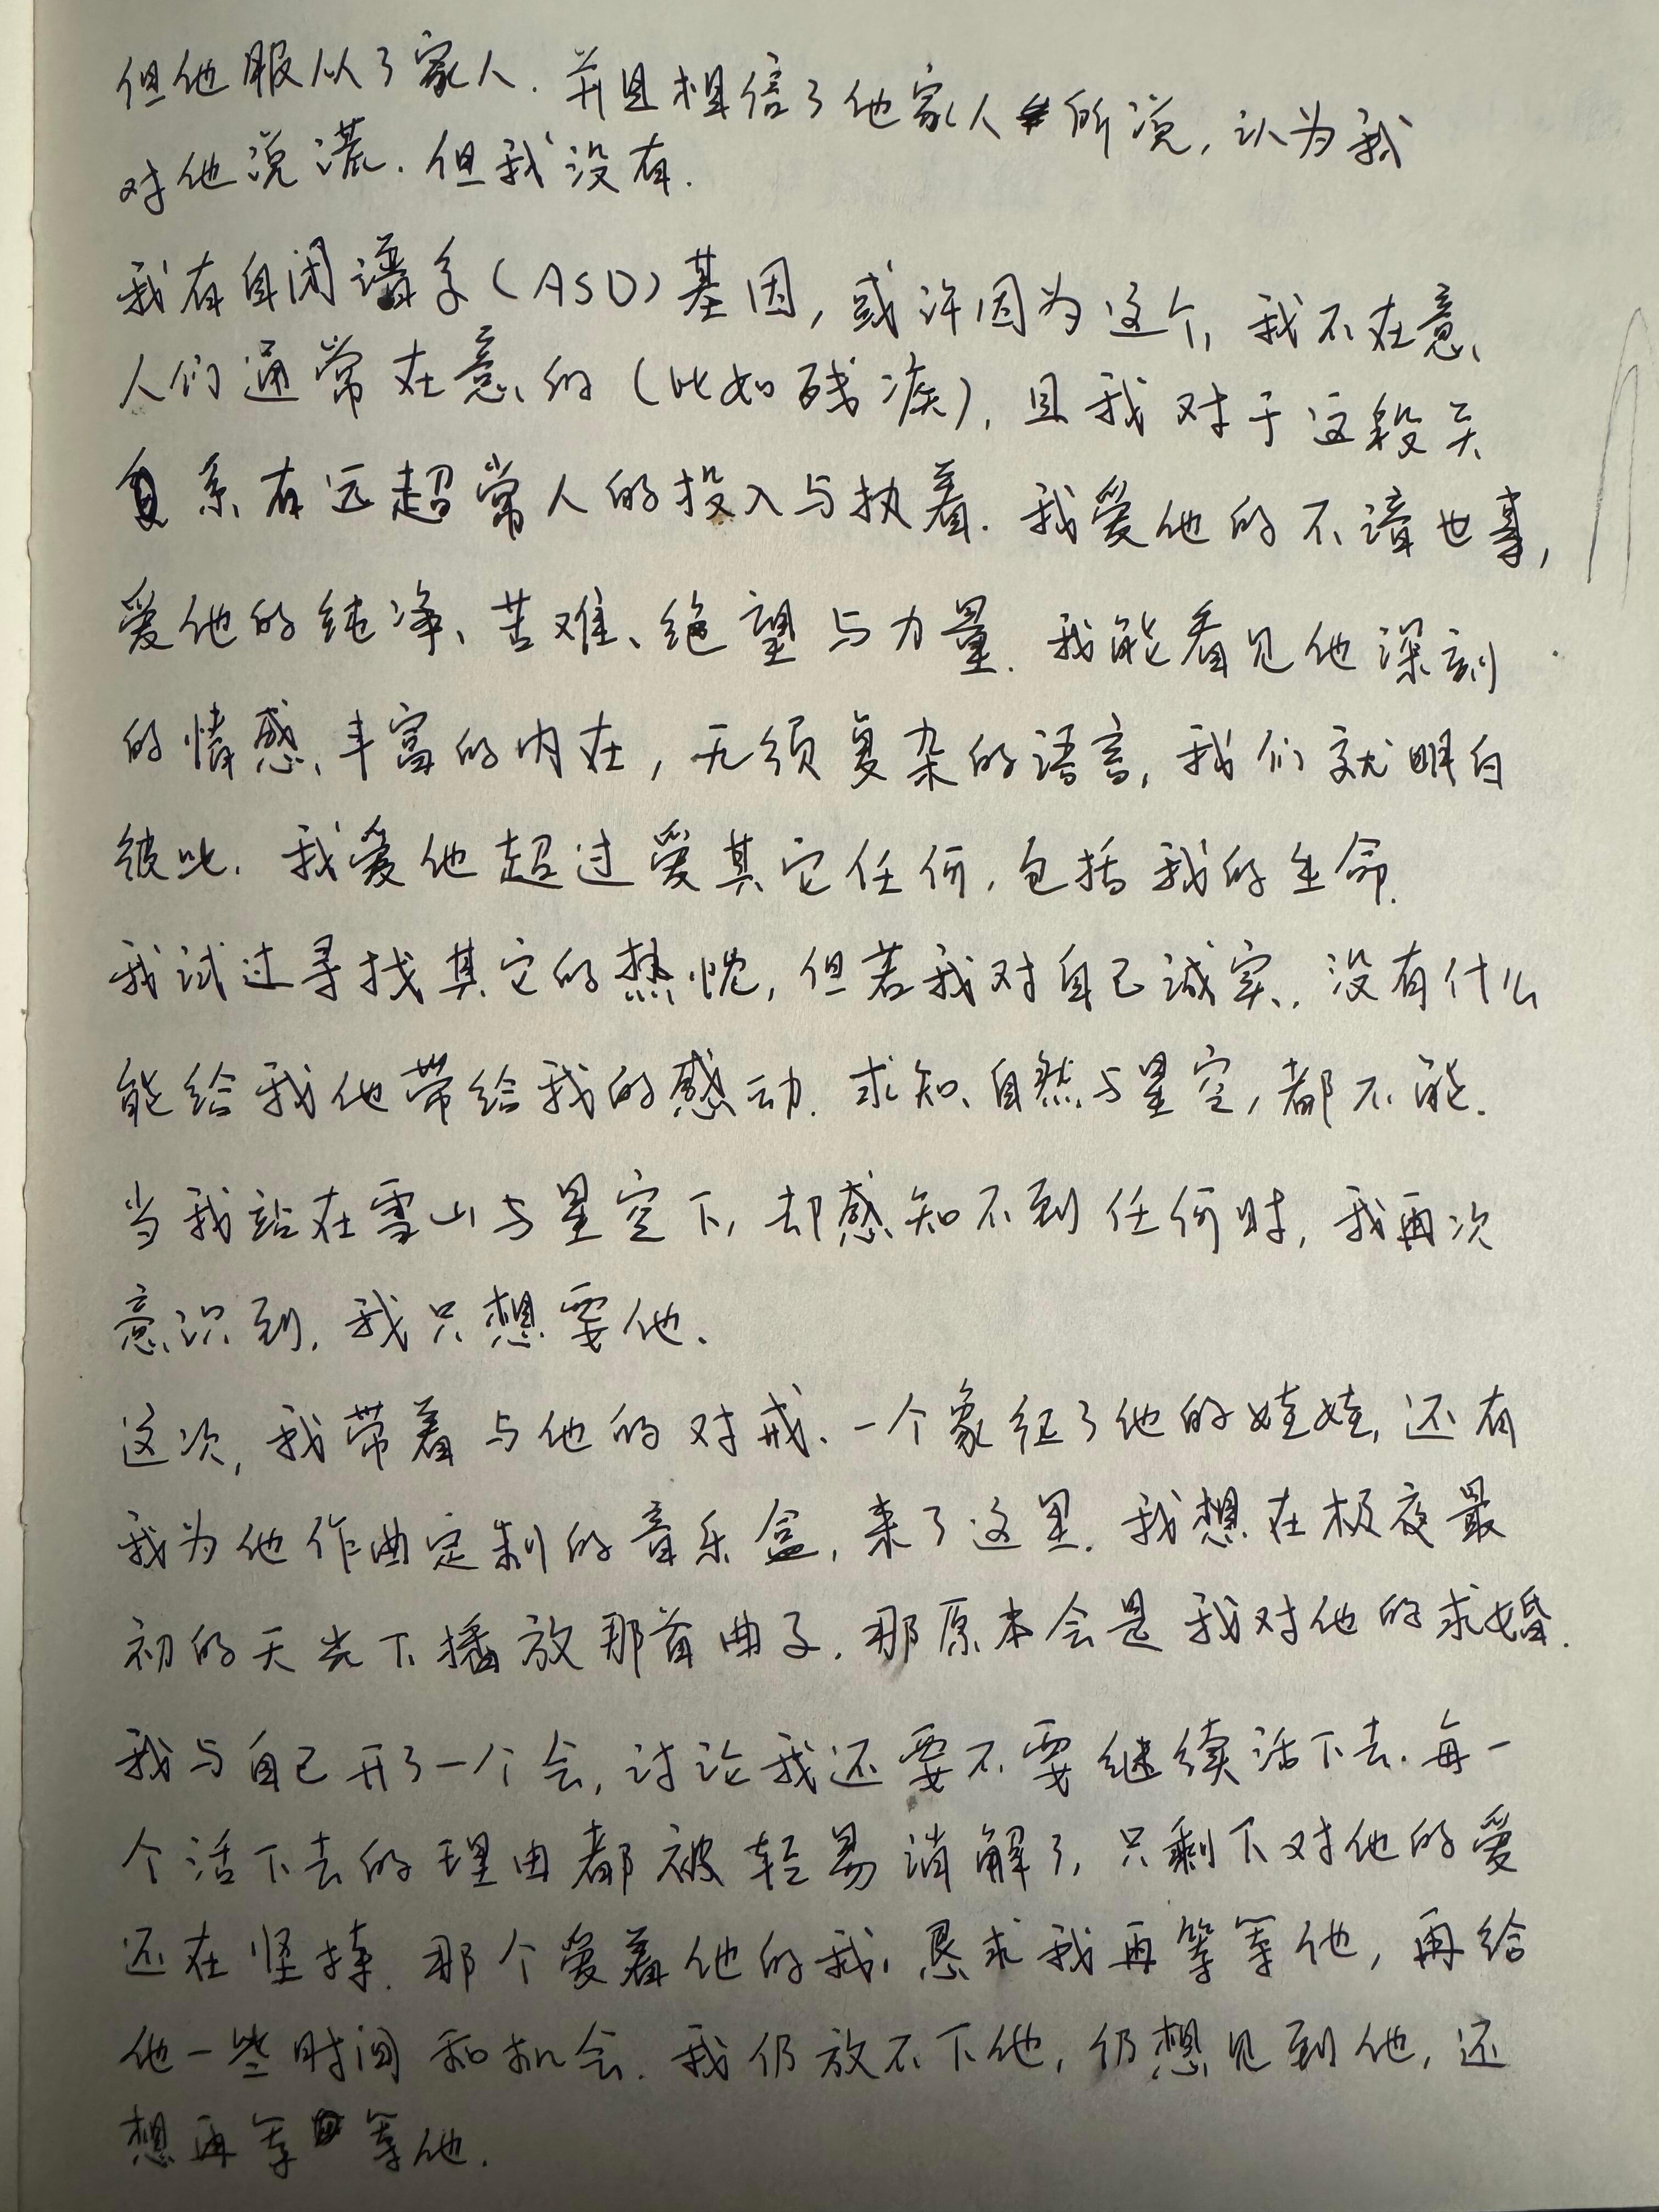 但他服从了家人. 并且相信了他家人所说, 认为我
对他说谎. 但我没有.
我有自闭谱系(ASD)基因, 或许因为这个, 我不在意
人们通常在意的(比如残疾), 且我对于这段关
系有远超常人的投入与执着. 我爱他的不谙世事,
爱他的纯净、苦难、绝望与力量. 我能看见他深刻
的情感、丰富的内在, 无须复杂的语言, 我们就明白
彼此. 我爱他超过爱其它任何, 包括我的生命.
我试过寻找其它的热忱, 但若我对自己诚实, 没有什么
能给我他带给我的感动. 求知、自然与星空, 都不能.
当我站在雪山与星空下, 却感知不到任何时, 我再次
意识到, 我只想要他.
这次, 我带着与他的对戒、一个象征了他的娃娃, 还有
我为他作曲定制的音乐盒, 来了这里. 我想在极夜最
初的天光下播放那首曲子. 那原本会是我对他的求婚.
我与自己开了一个会, 讨论我还要不要继续活下去. 每一
个活下去的理由都被轻易消解了, 只剩下对他的爱
还在坚持. 那个爱着他的我, 恳求我再等等他, 再给
他一些时间和机会. 我仍放不下他, 仍想见到他, 还
想再等等他.